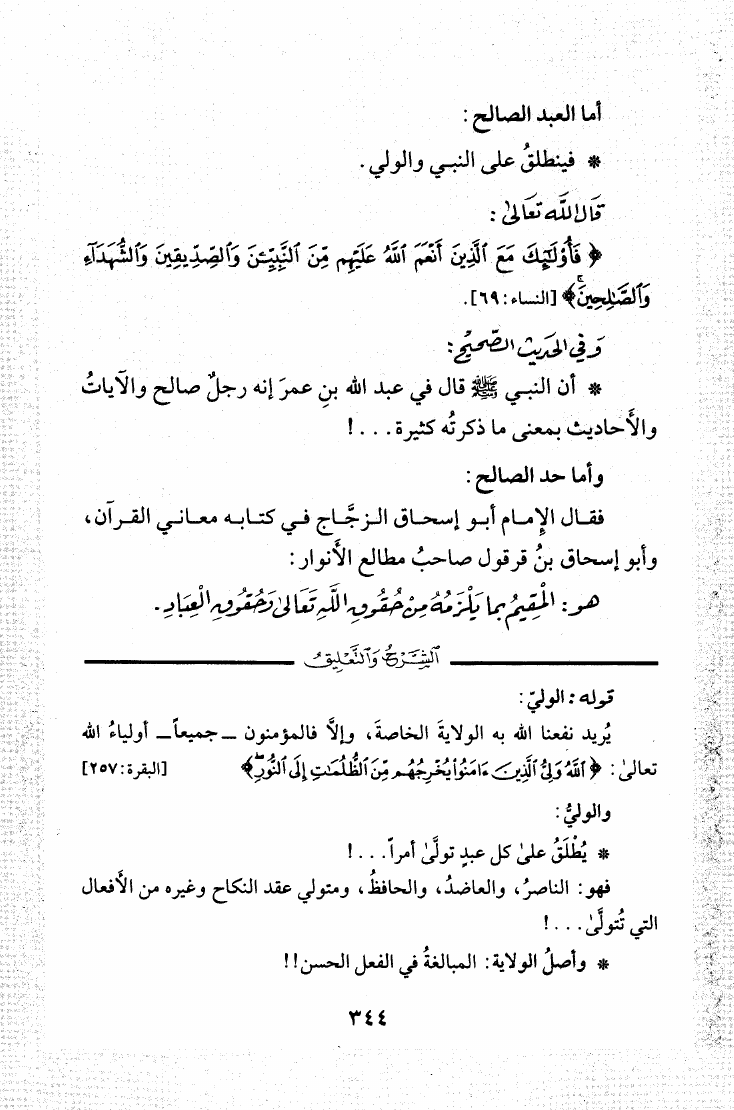 أما العبد الصالح :
* فينطلقُ على النبي والولي .
قَالَ اللَّه تَعَالىٰ :
﴿ فَأُوْلَٰٓئِكَ مَعَ ٱلَّذِينَ أَنْعَمَ ٱللَّهُ عَلَيْهِم مِّنَ ٱلنَّبِيِّـۧنَ وَٱلصِّدِّيقِينَ وَٱلشُّهَدَآءِ
وَٱلصَّٰلِحِينَۚ﴾ [النساء : ٦٩].
وَفِي الحَدِيْث الصَّحِيْحِ :
* أن النبـي ﷺ قال في عبد الله بنِ عمرَ إنه رجلٌ صالح والآياتُ
والأَحاديث بمعنى ما ذكرتُه كثيرة . . . !
وأما حد الصالح :
فقـال الإِمـام أبـو إسحـاق الـزجَّـاج فـي كتـابـه معـانـي القـرآن ،
وأبو إسحاق بنُ قرقول صاحبُ مطالع الأنوار :
هو : الْمُقِيمُ بما يَلْزَمُهُ مِنْ حُقُوقِ اللَّهِ تَعَالىٰ وَحُقُوقِ الْعِبَادِ .
الشَّرْحُ وَالتَّعْلِيقُ
قوله : الوليّ :
يُريد نفعنا الله به الولايةَ الخاصةَ ، وإلاَّ فالمؤمنون ــ جميعاً ــ أولياءُ الله
تعالىٰ : ﴿ ٱللَّهُ وَلِىُّ ٱلَّذِينَ ءَامَنُوا۟ يُخْرِجُهُم مِّنَ ٱلظُّلُمَٰتِ إِلَى ٱلنُّورِۖ﴾ [البقرة : ٢٥٧]
والوليُّ :
* يُطْلَقُ علىٰ كل عبدٍ تولَّىٰ أمراً . . . !
فهو : الناصرُ ، والعاضدُ ، والحافظُ ، ومتولي عقد النكاح وغيره من الأَفعال
التي تُتولَّىٰ . . . !
* وأصلُ الولاية : المبالغةُ في الفعل الحسن !!
٣٤٤